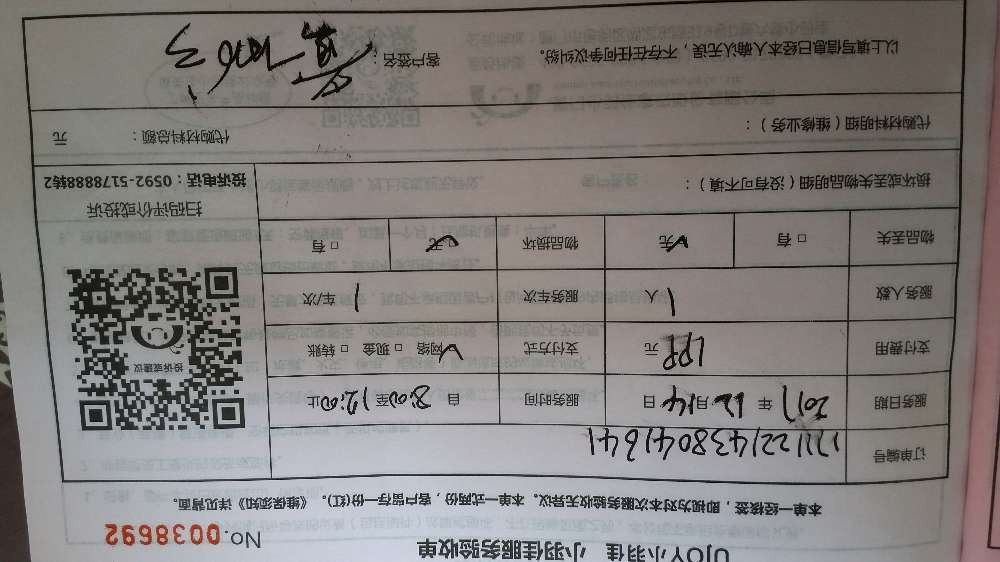 UJOY小羽佳 小羽佳服务验收单
No.0038692
本单一经核签，即视为对本次服务验收无异议。本单一式两份，客户留存一份(红)。《维保须知》详见背面。
订单编号
服务日期 2017 年 12 月 14 日 服务时间 自 8:00 至 12:00 止
支付费用 199 元 支付方式 ☑ 网络 □ 现金 □ 转账
服务人数 1 人 服务车次 1 车/次
物品丢失 □ 有 ☑ 无 物品损坏 □ 有 ☑ 无
投诉或建议
扫码评价或投诉
投诉电话：0592-5178888转2
损坏或丢失物品明细（没有可不填）：
代购材料明细（维修业务）：
代购材料总额： 元
以上填写信息已经本人确认无误，不存在任何争议纠纷。
客户签名：